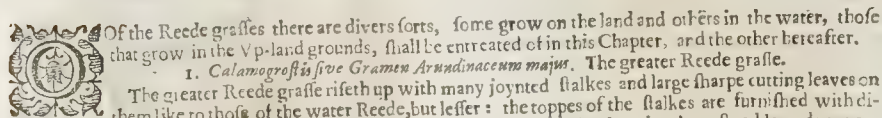 Of the Reede graſſes there are divers ſorts, ſome grow on the land and others in the water, thoſe
that grow in the Vp-land grounds, ſhall be entreated of in this Chapter, and the other hereafter.
1. Calamogroſtis ſive Gramen Arundinaceum majus. The greater Reede graſſe.
The greater Reede graſſe riſeth up with many joynted ſtalkes and large ſharpe cutting leaves on
them like to thoſe of the water Reede, but leſſer : the toppes of the ſtalkes are furniſhed with di-